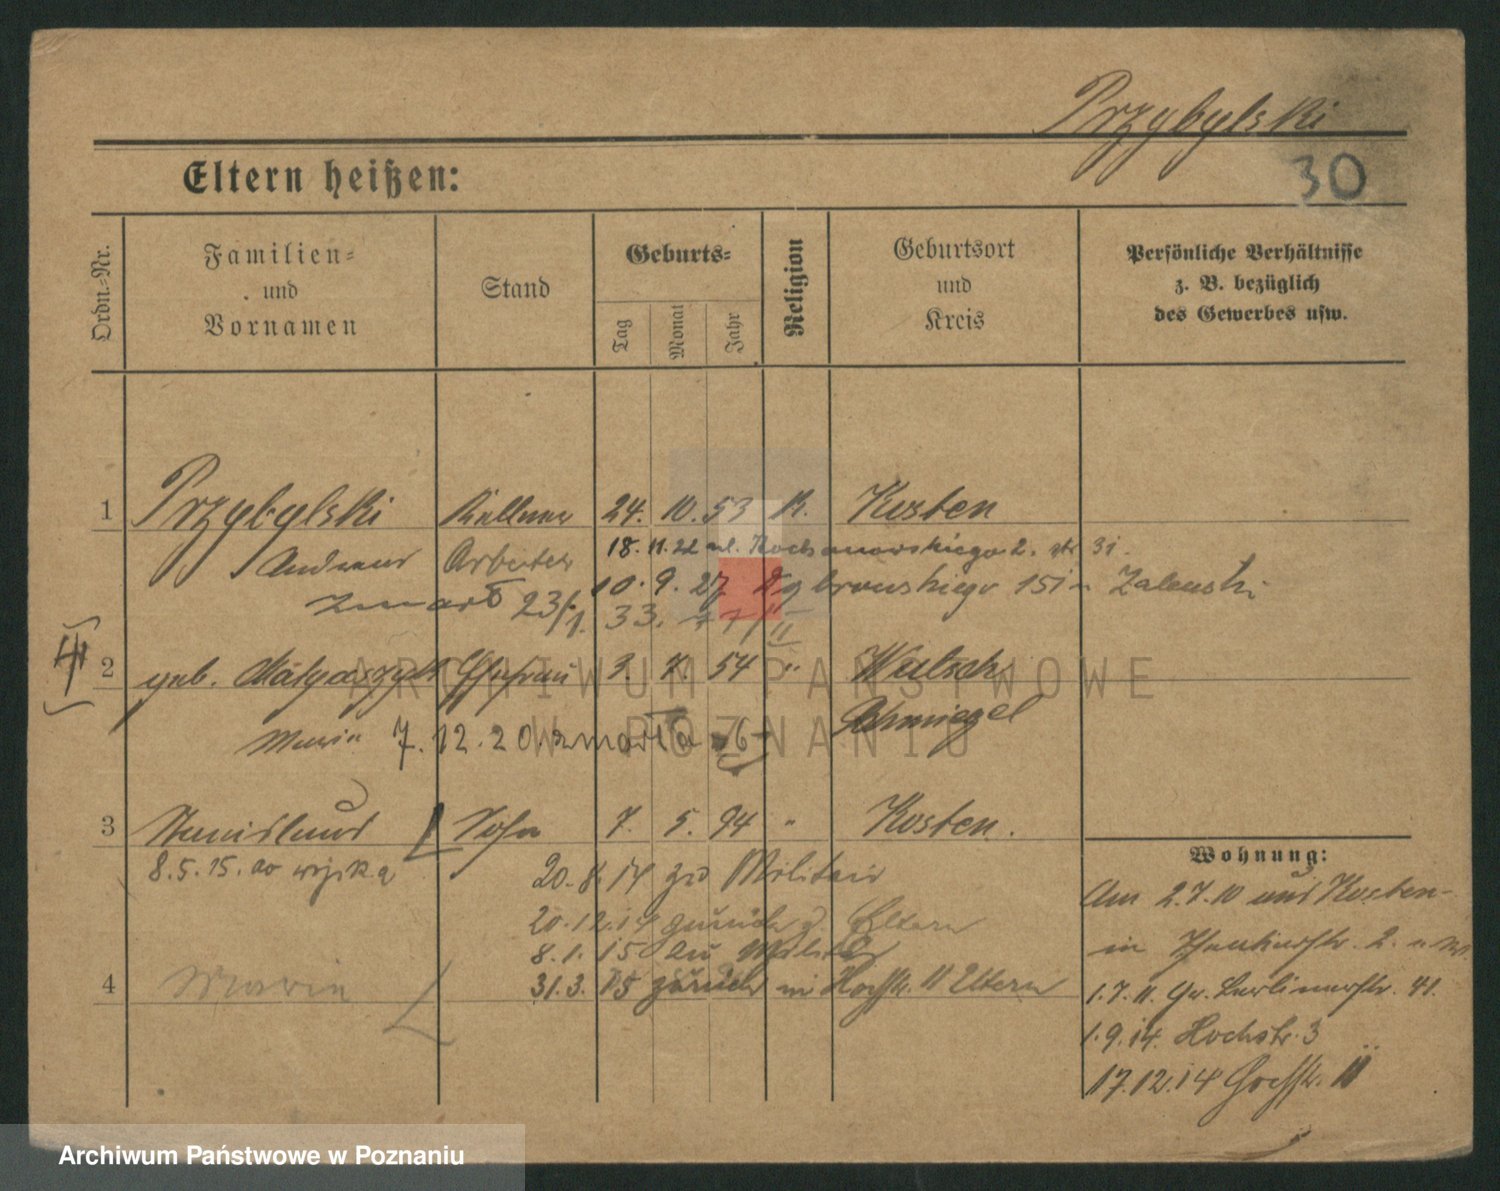 Przybylski
30
Eltern heißen:
Ordn.-Nr.
Familien-
und
Vornamen
Stand
Geburts-
Tag
Monat
Jahr
Religion
Geburtsort
und
Kreis
Persönliche Verhältnisse
z. B. bezüglich
des Gewerbes usw.
1 Przybylski Kellner 24. 10. 53 K. Kosten
Andreas Arbeiter 18. 11. 22 ul. Kochanowskiego 2. str 31.
10. 9. 27 Dąbrowskiego 15 Zalewski
zmarł 23/1. 33.
2 geb. Ehefrau 3. 7. 54 " 
Schmiegel
Maria 7. 12. 20. zmarła
3 Stanislaus Sohn 7. 5. 94 " Kosten.
8. 5. 15. do wojska
20. 8. 14 zu Militair
20. 12. 14 zurück z. Eltern
8. 1. 15 zu Militär
4 Maria
31. 3. 15 zurück in Hochstr. 11 Eltern
Wohnung:
Am 2. 7. 10 aus Kosten-
in 2.
1. 7. 11. Gr. Berlinerstr. 41.
1. 9. 14. Hochstr. 3
17. 12. 14 Hochstr. 11
ARCHIWUM PAŃSTWOWE
W POZNANIU
Archiwum Państwowe w Poznaniu